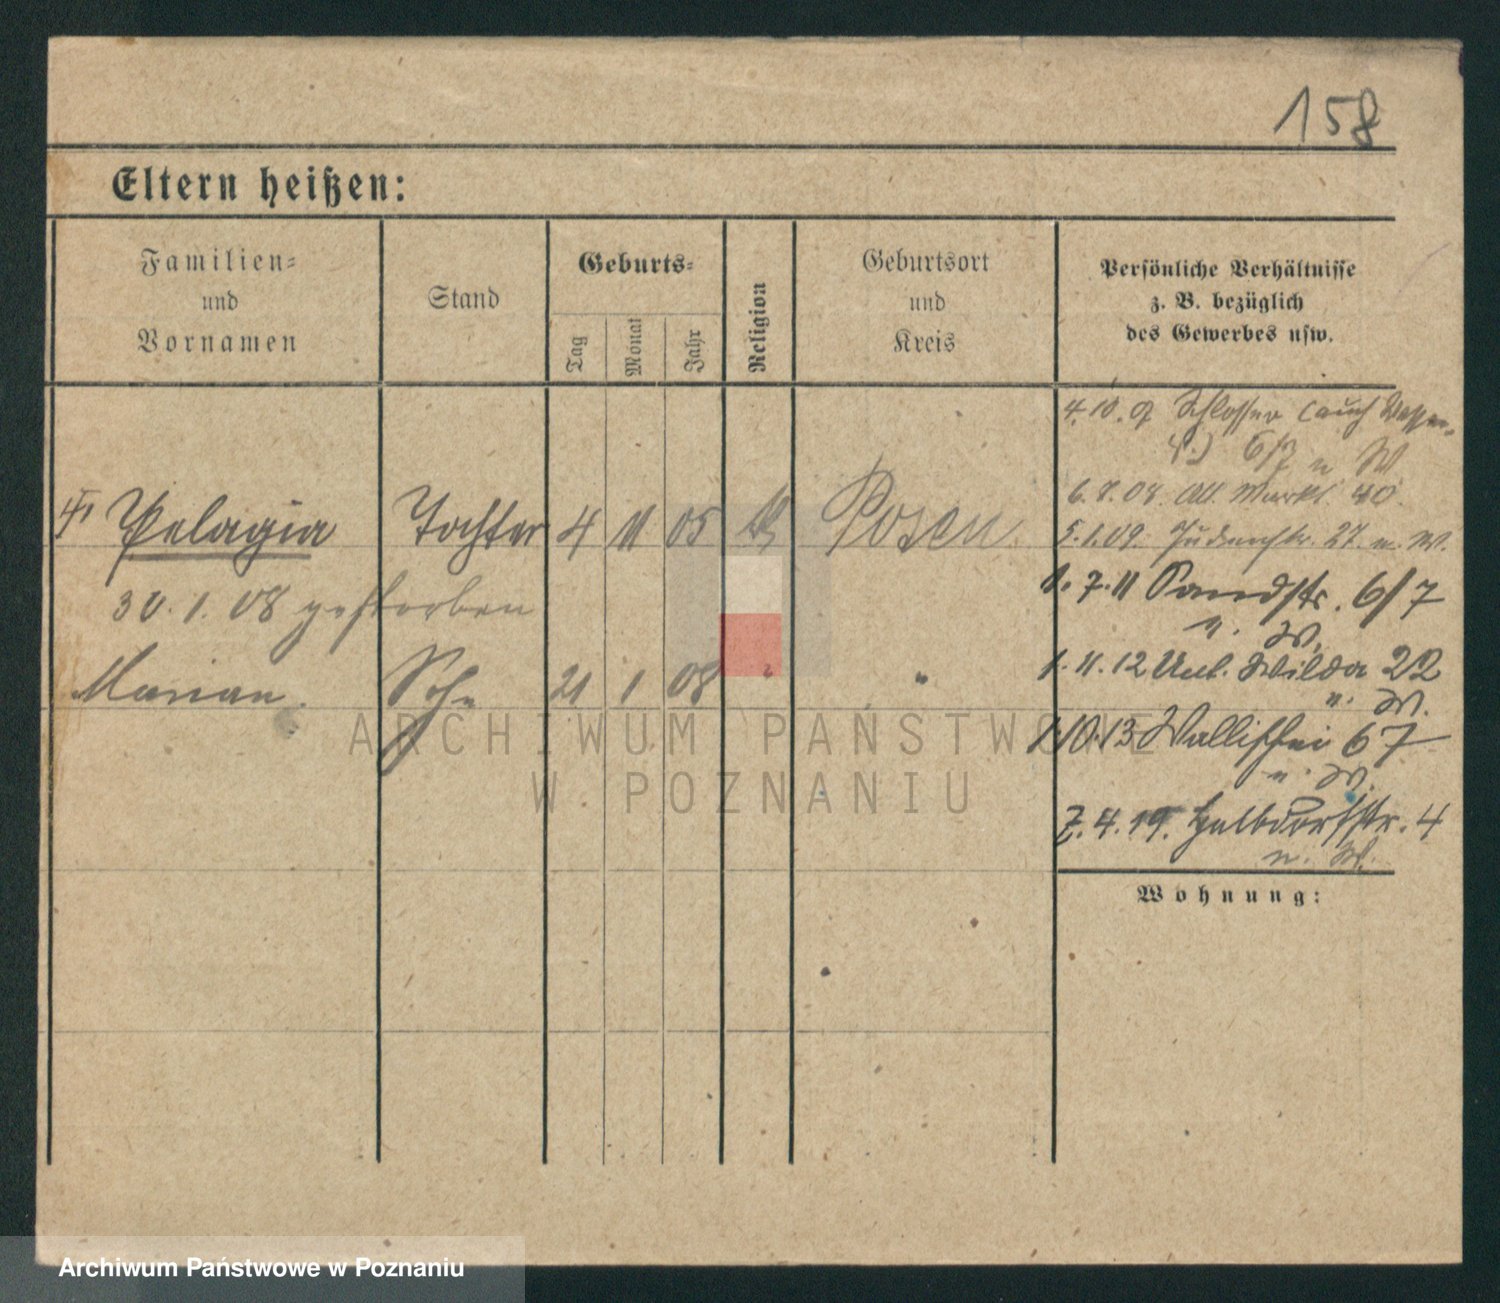 158
Eltern heißen:
Familien=
und
Vornamen
Stand
Geburts=
Tag
Monat
Jahr
Religion
Geburtsort
und
Kreis
Persönliche Verhältnisse
z. B. bezüglich
des Gewerbes usw.
4.10.07 Schlosser (auch
6/7 u W
6.7.08 Alt. Markt 40.
5.1.09. Judenstr. 27 u. W.
Pelagia Tochter 4 11 05 Posen
1.7.11 Sandstr. 6/7
u. W.
30.1.08 gestorben
1.11.12 Unt. Wilda 22
u. W.
Marian. Sohn 21 1 08 " "
1.10.13 Wallischei 67
u. W.
7.4.19. Halbdorfstr. 4
u. W.
Wohnung:
ARCHIWUM PAŃSTWOWE
W POZNANIU
Archiwum Państwowe w Poznaniu